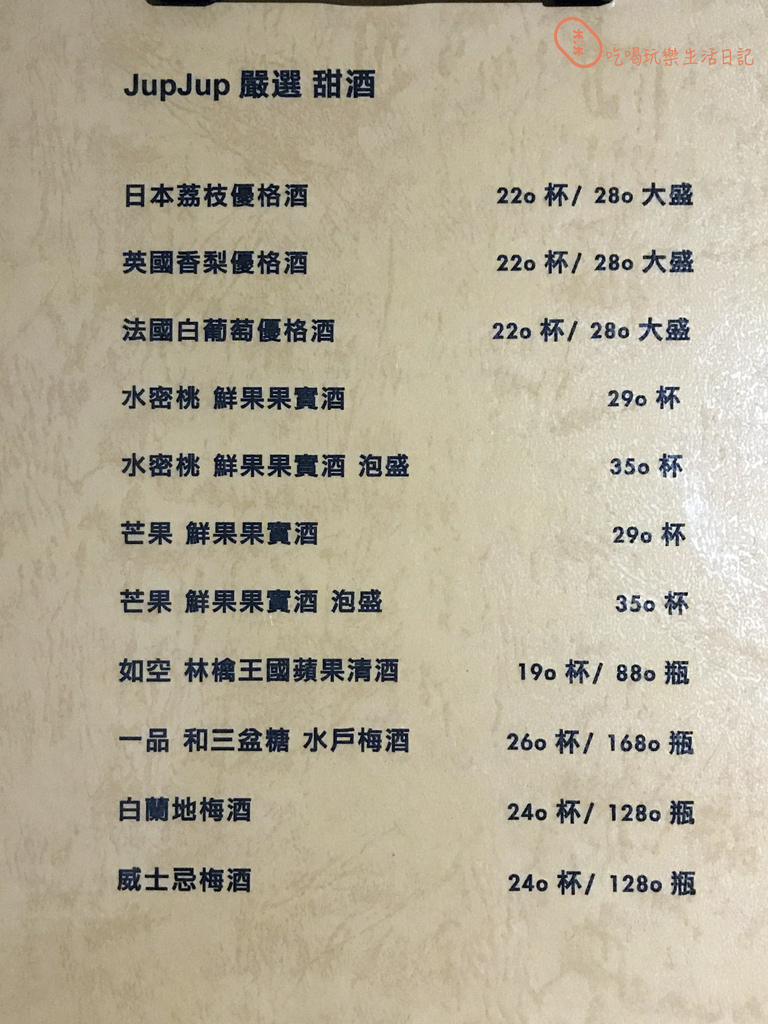 吃喝玩樂生活日記
JupJup 嚴選 甜酒
日本荔枝優格酒 220 杯/ 280 大盛
英國香梨優格酒 220 杯/ 280 大盛
法國白葡萄優格酒 220 杯/ 280 大盛
水密桃 鮮果果實酒 290 杯
水密桃 鮮果果實酒 泡盛 350 杯
芒果 鮮果果實酒 290 杯
芒果 鮮果果實酒 泡盛 350 杯
如空 林檎王國蘋果清酒 190 杯/ 880 瓶
一品 和三盆糖 水戶梅酒 260 杯/ 1680 瓶
白蘭地梅酒 240 杯/ 1280 瓶
威士忌梅酒 240 杯/ 1280 瓶